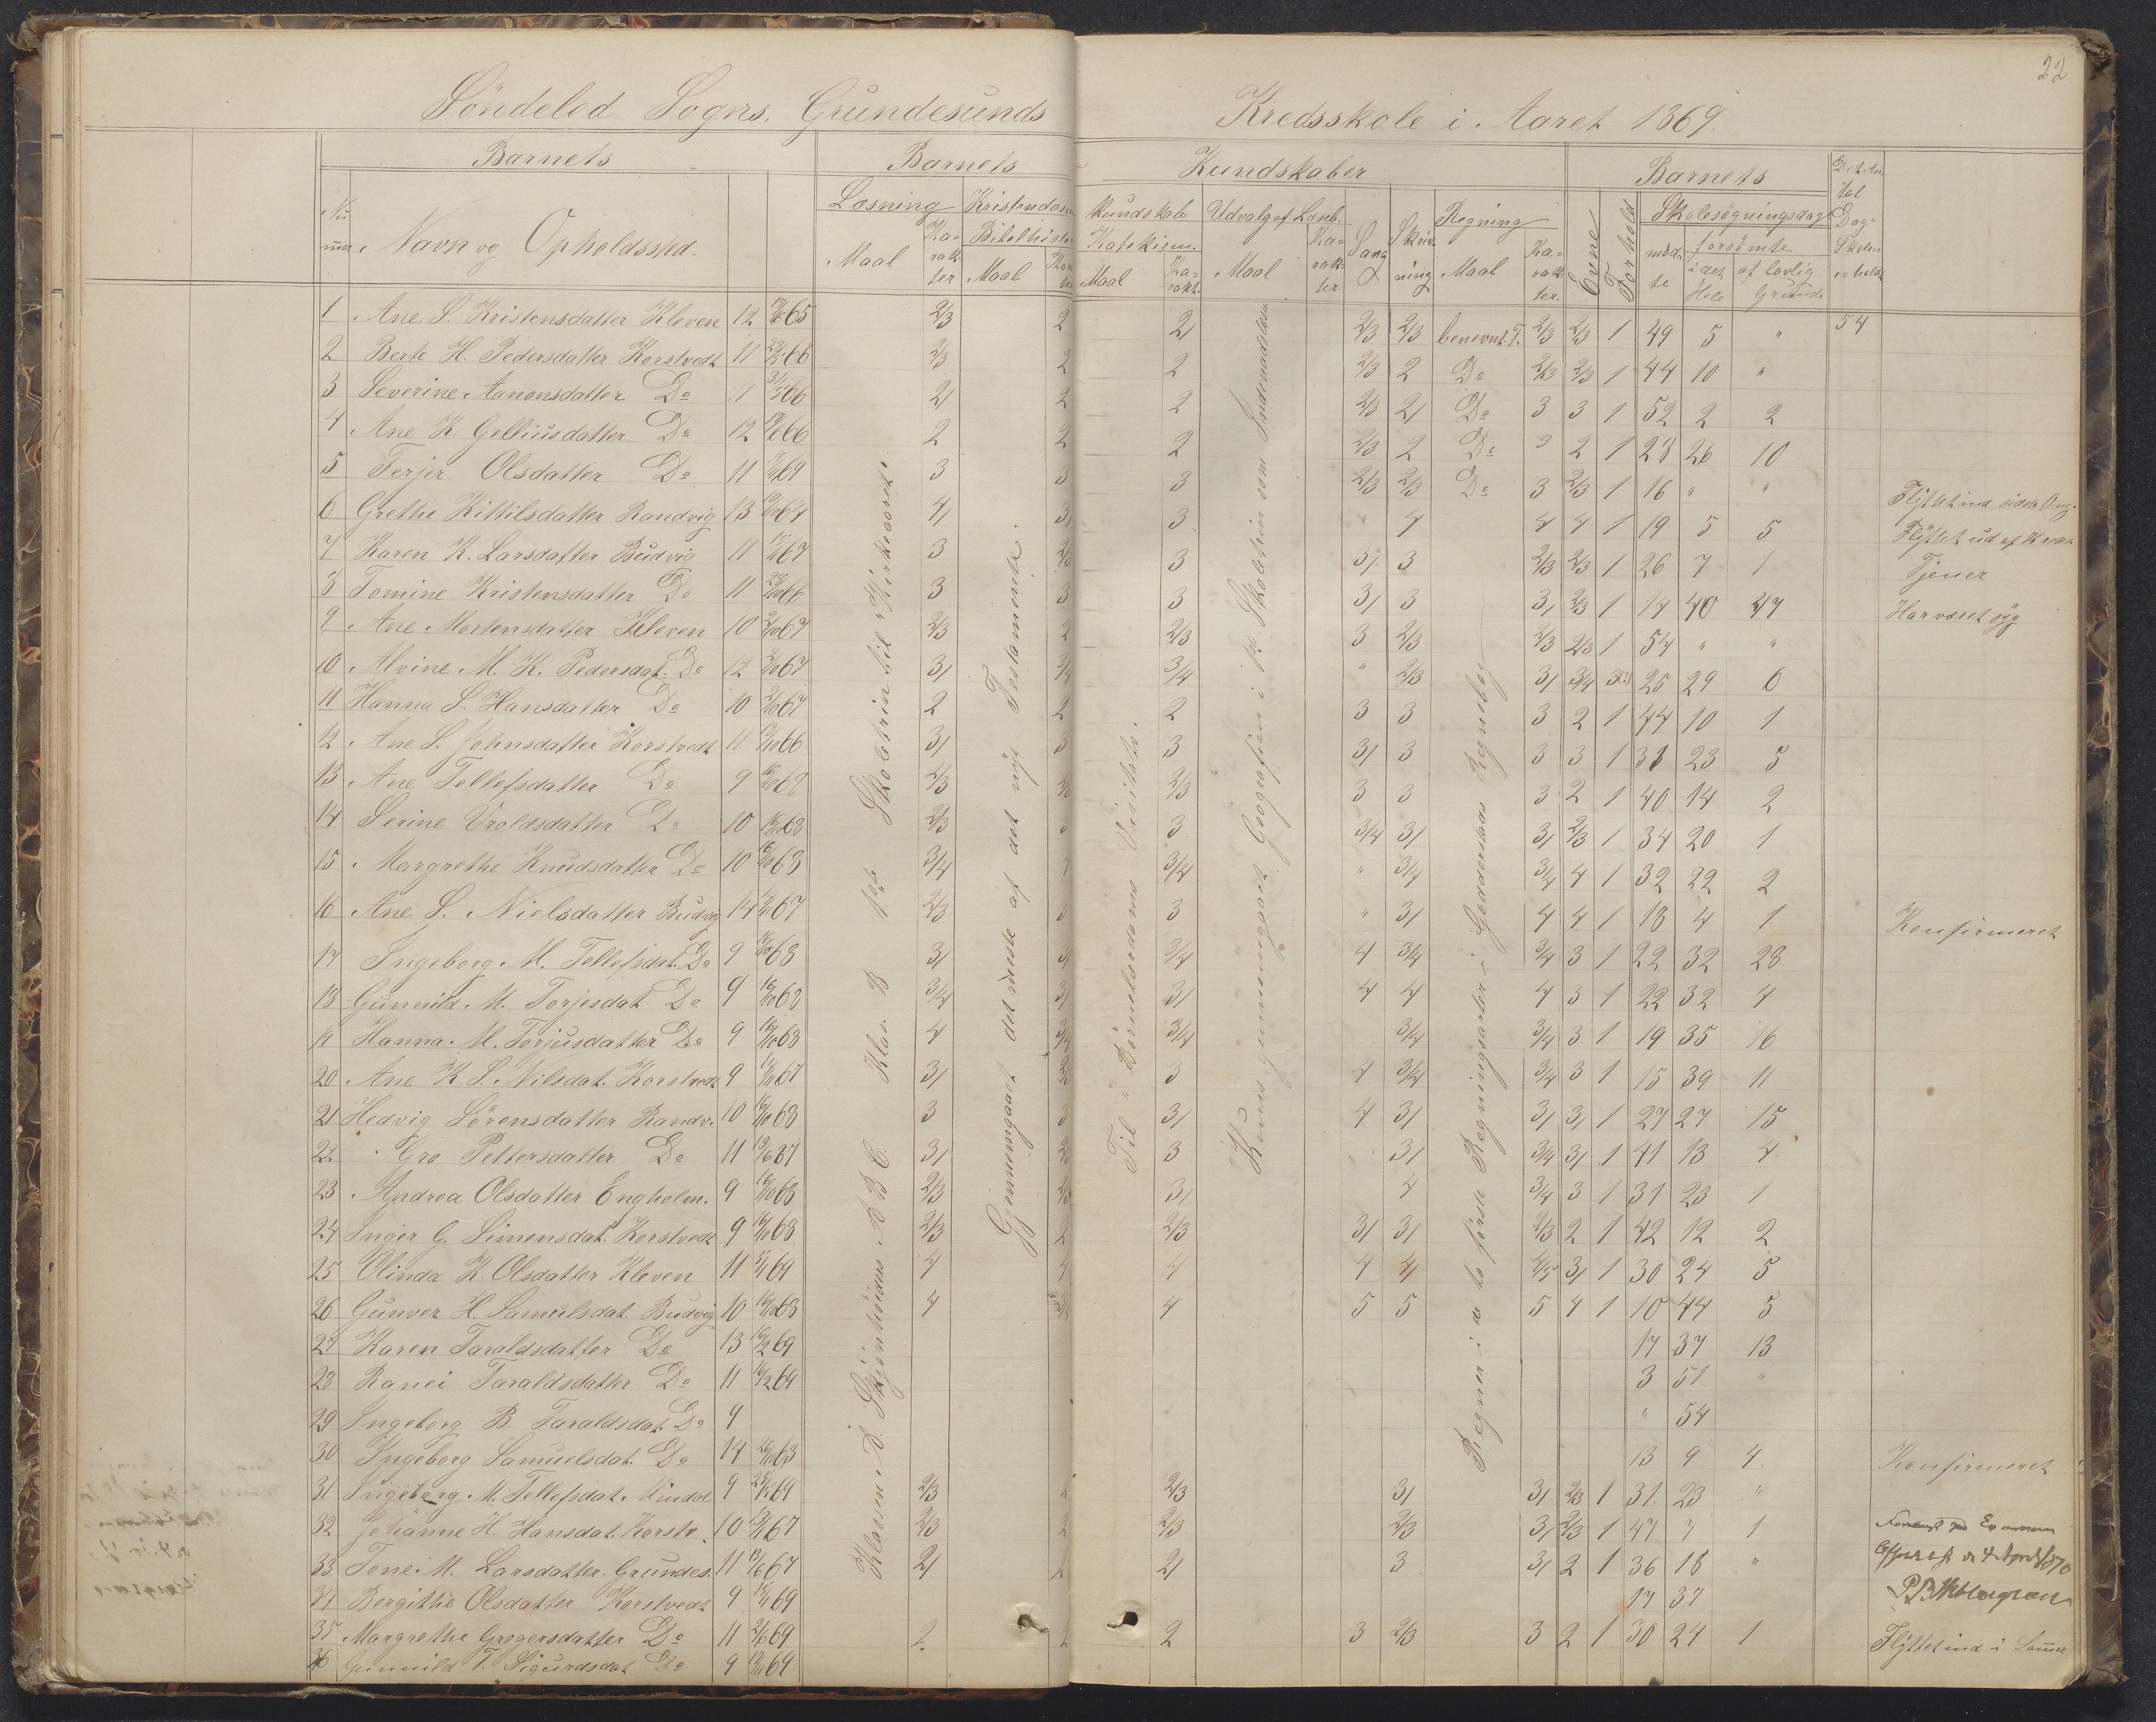 22
Söndeled Sogns, Grundesunds Kredsskole i Aaret 1869.
Barnets Barnets Kundskaber Barnets
Læsning Kristendoms kundskab Udvalg af Læseb. Sang Skrivning Regning Evne Forhold Skolesøgningsdage
Nummer Navn og Opholdssted. Maal Karakter Bibelhistor Maal Katekism. Maal Karakt. Maal Karakter Maal Karakter. mødte forsømte i det Hele af lovlig Grund
1 Ane S. Kristensdatter Kleven 12 65 2/3 2 2 2/3 2/3 benevnt T. 2/3 2/3 1 49 5 " 54
2 Berte H. Pedersdatter Korstvedt 11 66 2/3 2 2 2/3 2 Do 2/3 2/3 1 44 10 "
3 Severine Aanonsdatter Do 11 66 2/ 2 2 2/3 2/ Do 3 3 1 52 2 2
4 Ane K. Gelliusdatter Do 12 66 2 2 2 2/3 2 Do 3 2 1 28 26 10
5 Terjer Olsdatter Do 11 69 3 3 3 2/3 2/3 Do 3 2/3 1 16 " " Flyttet ind
6 Grethe Kittilsdatter Randvig 13 64 4/ 3/ 3 4 4 4 1 19 5 5 Flyttet ud af
7 Karen K. Larsdatter Budvig 11 67 3 3 3/ 3 2/3 2/3 1 26 7 1 Tjener
8 Tomine Kristensdatter Do 11 66 3 3 3 3/ 3 3/ 2/3 1 14 40 47 Har været syg
9 Ane Mortensdatter Kleven 10 67 2/3 2 2/3 3 2/3 2/3 2/3 1 54 " "
10 Alvine M. K. Pedersdat. Do 12 67 3/ 3/4 3/4 " 2/3 3/ 3/4 25 29 6
11 Hanna S. Hansdatter Do 10 67 2 2 2 3 3 3 2 1 44 10 1
12 Ane S. Johnsdatter Korstvedt 11 66 3/ 3 3 3/ 3 3 3 1 31 23 5
13 Ane Tellefsdatter Do 9 68 2/3 2/3 3 3 3 2 1 40 14 2
14 Serine Vroldsdatter Do 10 68 2/3 3 3 3/4 3/ 3/ 2/3 1 34 20 1
15 Margrethe Knudsdatter Do 10 68 3/4 3/4 " 3/4 3/4 4 1 32 22 2
16 Ane S. Nielsdatter Budvig 14 67 2/3 3 3 " 3/ 4 4 1 18 4 1 Konfirmeret
17 Ingeborg M. Tellefsdat. Do 9 68 3/ 3/4 4 3/4 3/4 3 1 22 32 28
18 Gunnild M. Torjesdat Do 9 68 3/4 3/ 3/ 4 4 4 3 1 22 32 4
19 Hanna M. Torjusdatter Do 9 68 4 3/4 3/4 3/4 3/4 3 1 19 35 16
20 Ane K. S. Nilsdat. Korstvedt 9 67 3/ 3 4 3/4 3/4 3 1 15 39 11
21 Hedvig Sörensdatter Randv. 10 68 3 3 3/ 4 3/ 3/ 3/ 1 27 27 15
22 Gro Pettersdatter Do 11 67 3/ 3 3/ 3/4 3/ 1 41 13 4
23 Andrea Olsdatter Engholm. 9 68 2/3 3/ 4 3/4 3 1 31 23 1
24 Inger G. Simensdat. Korstvedt 9 68 2/3 2 2/3 3/ 3/ 2/3 2 1 42 12 2
25 Olinda K. Olsdatter Kleven 11 69 4 4 4 4 4/ 4/5 3/ 1 30 24 5
26 Gunver H. Samuelsdat. Budvig 10 68 4 4 5 5 5 4 1 10 44 5
27 Karen Taraldsdatter Do 13 69 17 37 13
28 Ranei Taraldsdatter Do 11 69 3 51 "
29 Ingeborg B. Taraldsdat. Do 9 " 54
30 Ingeborg Samuelsdat. Do 14 63 13 9 4 Konfirmeret
31 Ingeborg M. Tellefsdat. 9 69 2/3 2 2/3 3/ 3/ 2/3 1 31. 23 "
32 Johanne H. Hansdat. Korstv. 10 67 2/3 2 2/3 2/3 3/ 2/3 1 47 7 1
33 Tone M. Larsdatter. Grundes. 11 67 2/ 2/ 3 3/ 2 1 36 18 " 4 April 1870
34 Bergithe Olsdatter Korstvedt 9 69 17 37
35 Margrethe Gregersdatter Do 11 69 2. 2 2 3 2/3 3 2 1 30 24 1 Flyttet ind i
36 Gunnild T. Sigurdsdat Do 9 69
Klassen A. Skjönhöians A B C. Klas. B 1ste Skoletrin til "Kirkeaaret".
Gjennemgaaet det meste af det nye Testamente.
Til "Börnelærdoms Visitats".
Kuns gjennemgaaet Geografien i 1ste Skoletrin som Indenadslæsn
Regner i de to første Regningsarter i Geddersstaas Regnebog